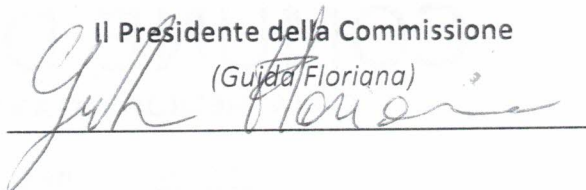 Il Presidente della Commissione
(Guida Floriana)
Guida Floriana